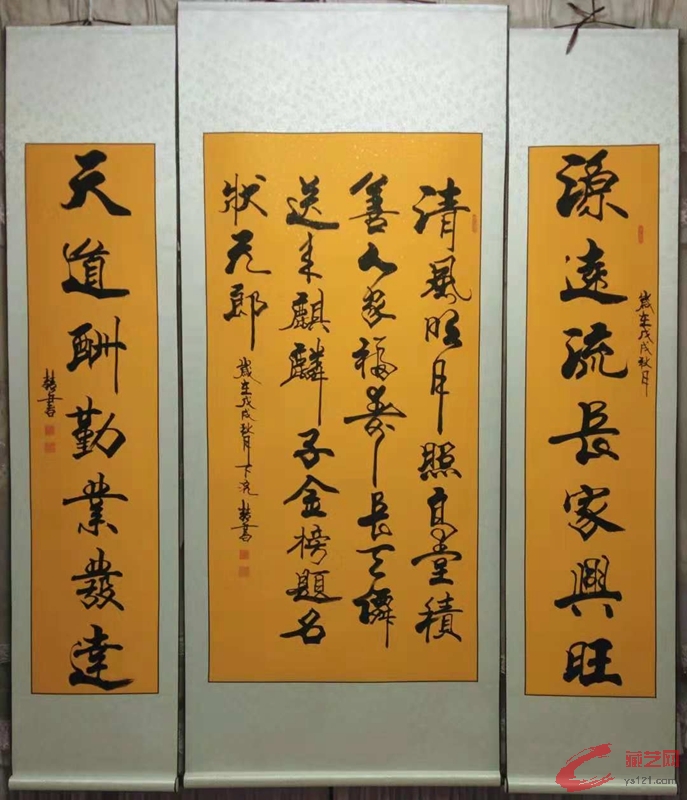 源遠流長家興旺
歲在戊戌秋月
清風明月照高堂積
善人家福壽長天僊
送来麒麟子金榜題名
狀元郎
歲在戊戌秋月
天道酬勤業發達
藏艺网
ys121.com